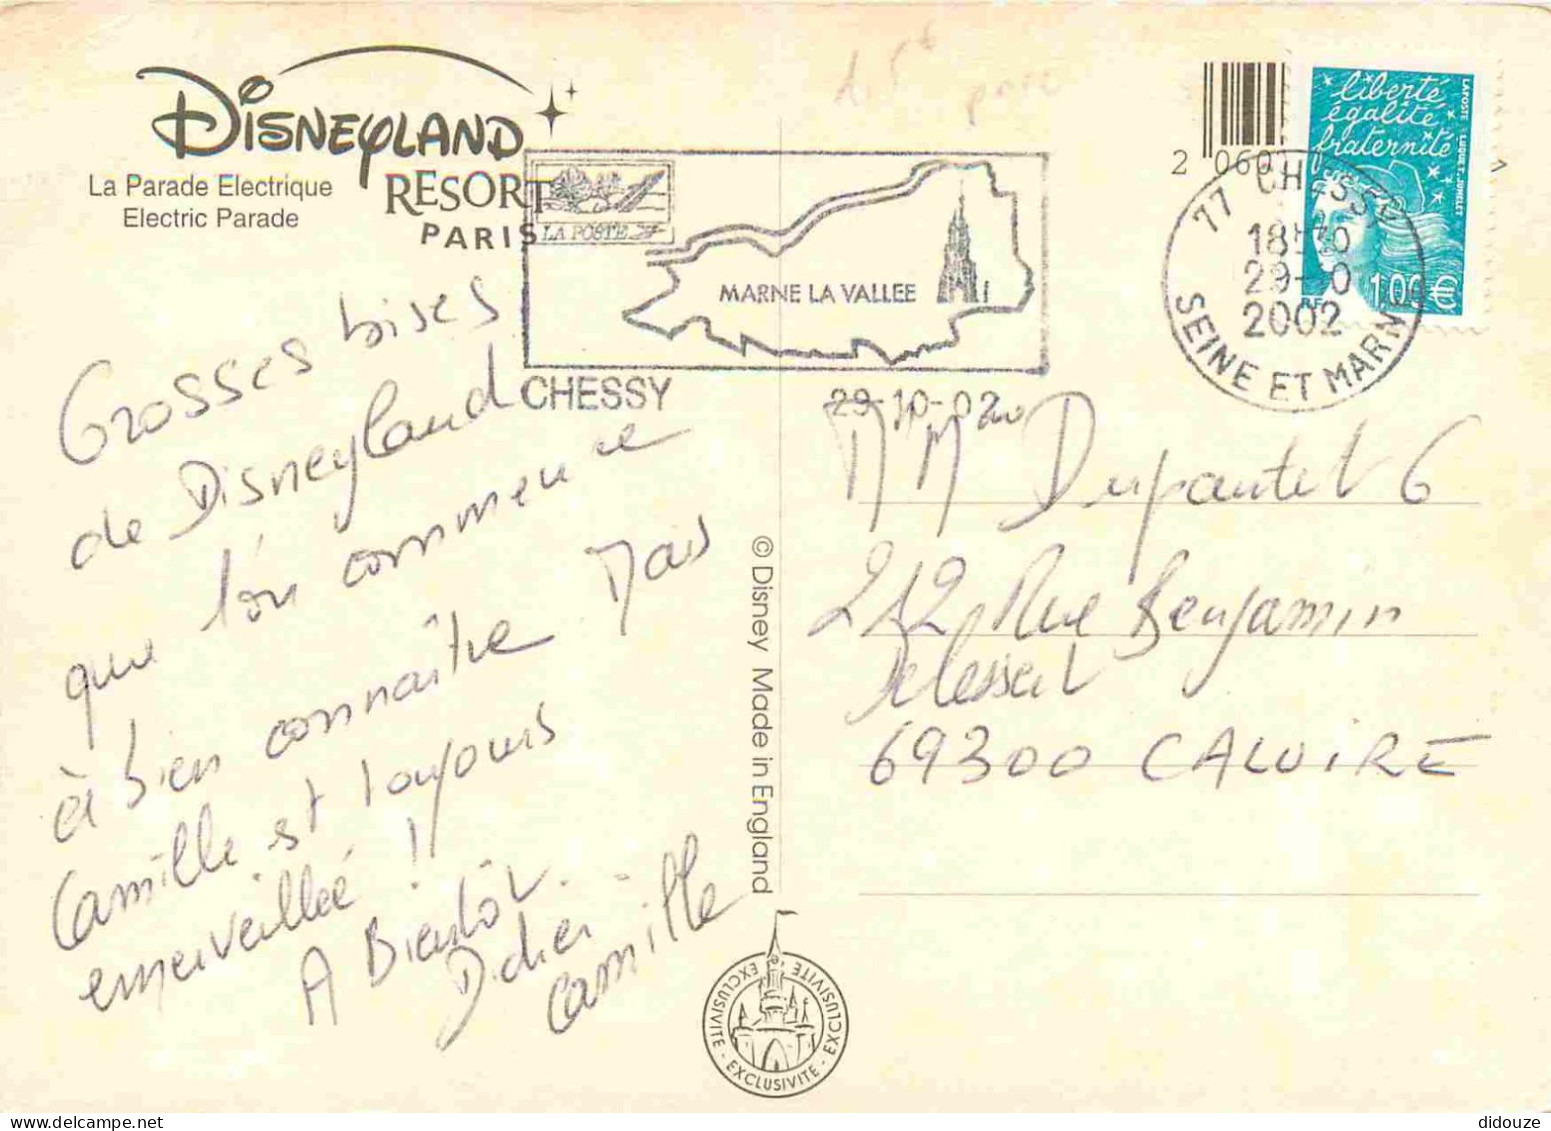 DISNEYLAND
RESORT
PARIS
La Parade Electrique
Electric Parade
LA POSTE
MARNE LA VALLEE
CHESSY
29-10-02
2 060
77 CHESSY
18H30
29- 0
2002
SEINE ET MARNE
liberté
égalité
fraternité
LA POSTE LUQUET. JUMELET
RF
1,00 €
Grosses bises
de Disneyland
que l'on commence
à bien connaître Mais
Camille est toujours
emerveillée !
A Bientôt.
Didier
Camille
© Disney Made in England
212 Rue Benjamin
Delessert
69300 CALUIRE
EXCLUSIVITE - EXCLUSIVITE - EXCLUSIVITE - EXCLUSIVITE
didouze